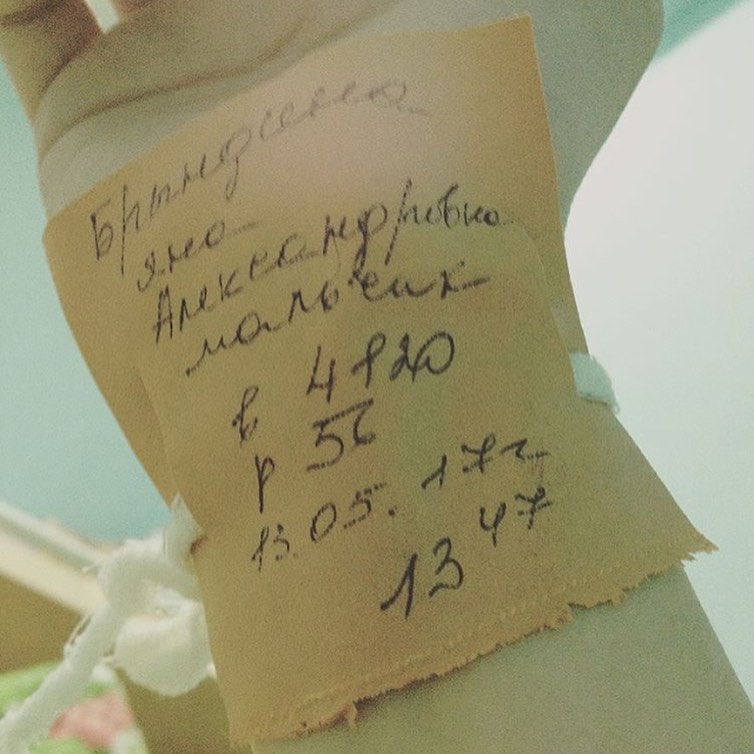 Брындина
яна
Александровна
мальчик
в 4820
р 56
13.05.17г
13 47